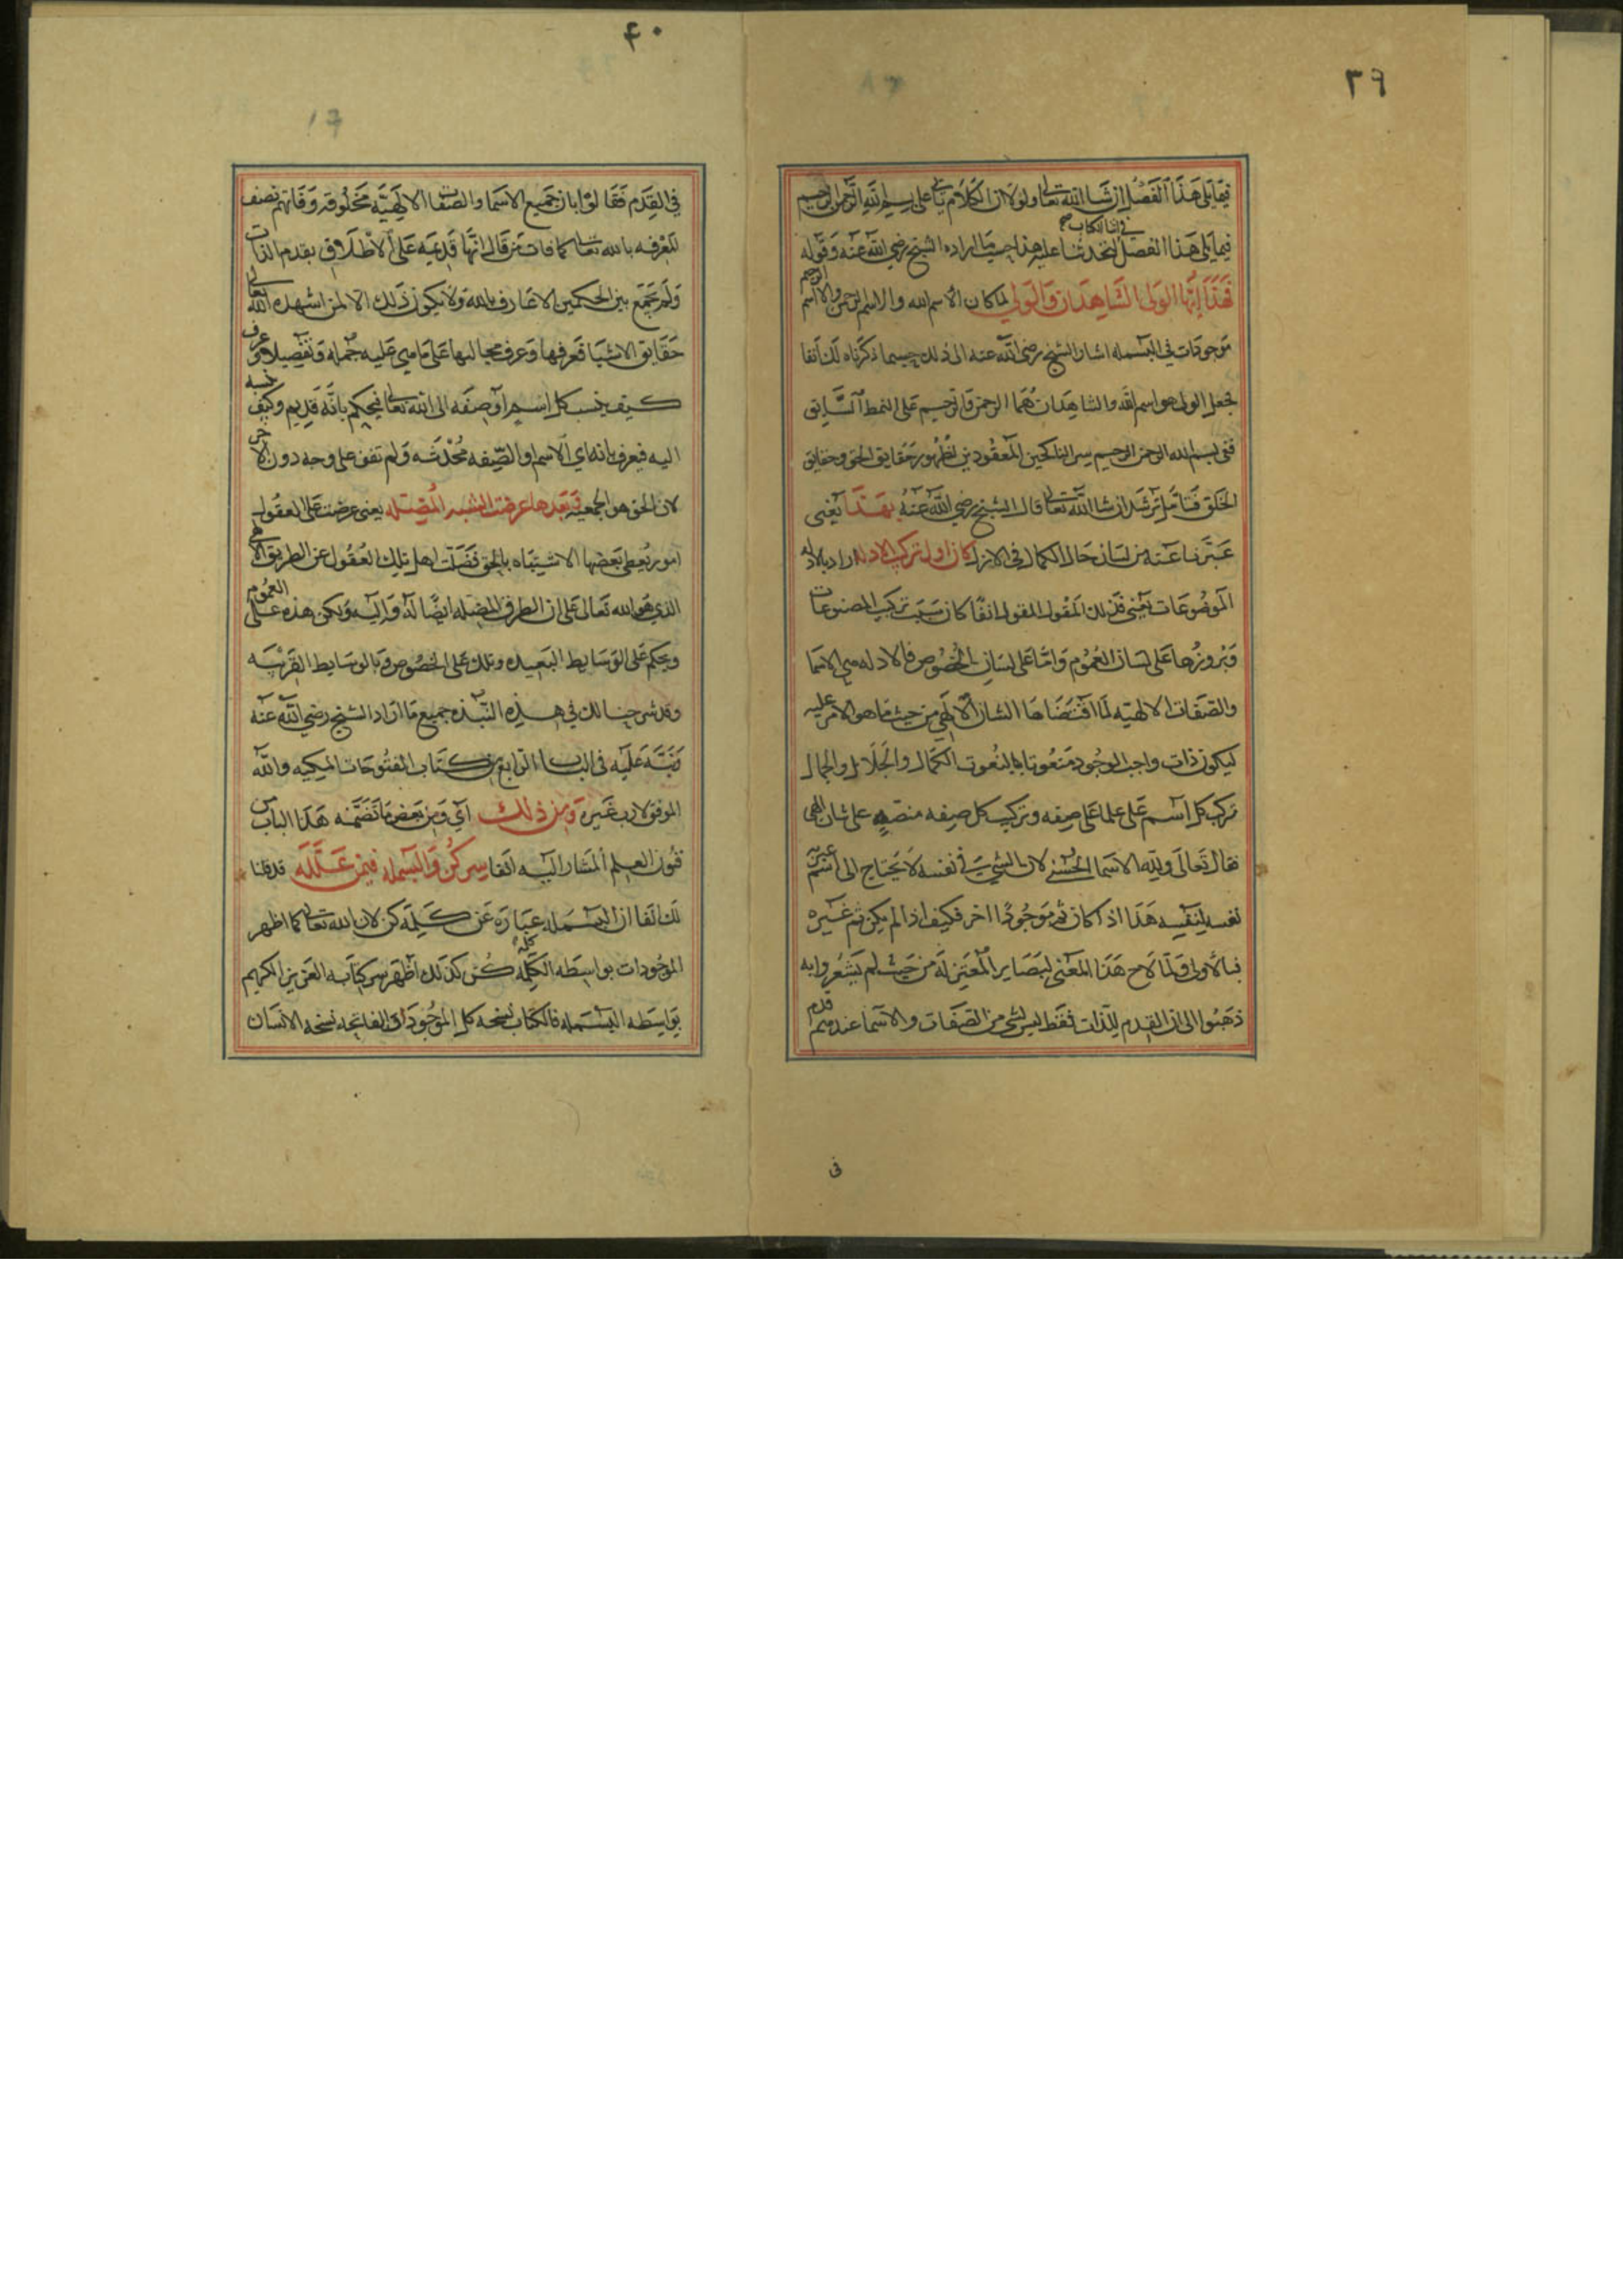 ٣٩
فيما يلي هذا الفصل ان شا الله تعالى ولولا ان الكلام ياتي على بسم الله الرحمن الرحيم
في اثنا الكتاب صح
فيما يلي هذا الفصل لتحدثنا عليه هنا حسبما اراده الشيخ رضي الله عنه وقوله
فهذا ايها الولي الشاهدان والولي لما كان الاسم الله والاسم الرحمن والاسم الرحيم
موجودات في البسمله اشار الشيخ رضى الله عنه الى ذلك حسبما ذكرناه لك انفا
فجعل الولى هو اسم الله والشاهدان هما الرحمن والرحيم على النمط السابق
ففى بسم الله الرحمن الرحيم سر الناكحين المعقودين لظهور حقايق الحق وحقايق
الخلق فتامل ترشد ان شا الله تعالى قال الشيخ رضي الله عنه بهذا يعنى
عبرنا عنه من لسان حال الكمال في الازل كان اول تركيب الادله اراد بالادله
الموضوعات يعنى فذلك المقول المقول انفا كان سبب تركيب المصنوعات
وبروزها على لسان العموم واما على لسان الخصوص فالادله هي الاسما
والصفات الالهيه لما اقتضاها الشان الالهي من حيث ما هو الامر عليه
ليكون ذات واجب الوجود منعوتا بالنعوت الكمال والجلال والجمال
تركب كل اسم على علما على صفه وتركيب كل صفه منصه على شان الهى
فقال تعالى ولله الاسما الحسنى لان الشي في نفسه لا يحتاج الى اسم عيين
نفسه لنفسه هذا اذا كان ثم موجودا اخر فكيف اذا لم يكن ثم غيره
فبالأولى ولما لاح هذا المعنى لبصاير المعتزله من حيث لم يشعروا به
ذهبوا الى ان القدم للذات فقط ليس لشي من الصفات والاسما عندهم قدم
فى
٤٠
في القدم فقالوا بان جميع الاسما والصفات الالهيه مخلوقه وفاتهم نصف
المعرفه بالله تعالى كما فات من قال انها قديمه على الاطلاق بقدم الذات
ولم يجمع بين الحكمين الا عارف بالله ولا يكون ذلك الا لمن اشهده الله تعالى
حقايق الاشيا فعرفها وعرف مجاليها على ما هي عليه جمله وتفصيلا عرف
كيف ينسب كل اسم او صفه الى الله تعالى فيحكم بانه قديم وكيف نسبه
اليه فيعرف بانه اي الاسم او الصفه محدثه ولم تقف على وجه دون الاخر
لان الحق هو الجمعيه فبعدها عرضت الشبه المضله يعنى عرضت على العقول
امور يعطى بعضها الاشتباه بالحق فضلت اهل تلك العقول عن الطريق الاهم
الذي هو الله تعالى على ان الطرق المضله ايضا له واليه ولكن هذه على العموم
ويحكم على الوسايط البعيده وتلك على الخصوص وبالوسايط القريبه
وقد شرحنا لك في هذه النبذه جميع ما اراد الشيخ رضي الله عنه
ونبه عليه فى الباب الرابع من كتاب الفتوحات المكيه والله
الموفق لا رب غيره ومن ذلك اي ومن بعض ما تضمنه هذا الباب من
فنون العلم المشار اليه انفا سر كن والبسمله فيمن علله قد قلنا
لك انفا ان البسمله عبارة عن كلمة كن لان الله تعالى كما اظهر
الموجودات بواسطه الكلمه كلمة كن كذلك اظهر سر كتابه العزيز الكريم
بواسطه البسمله فالكتاب نسخه كل الموجودات والفاتحه نسخه الانسان